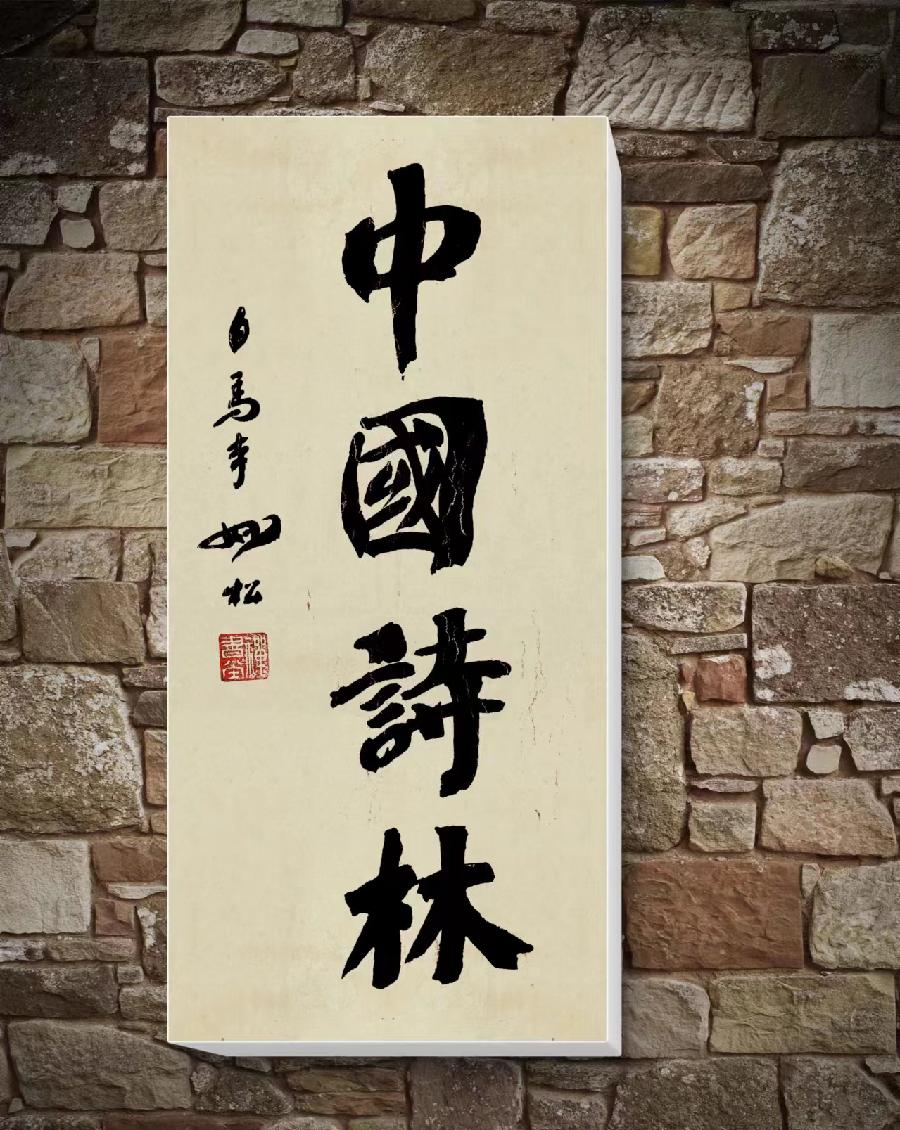 中國詩林
白馬寺妙松